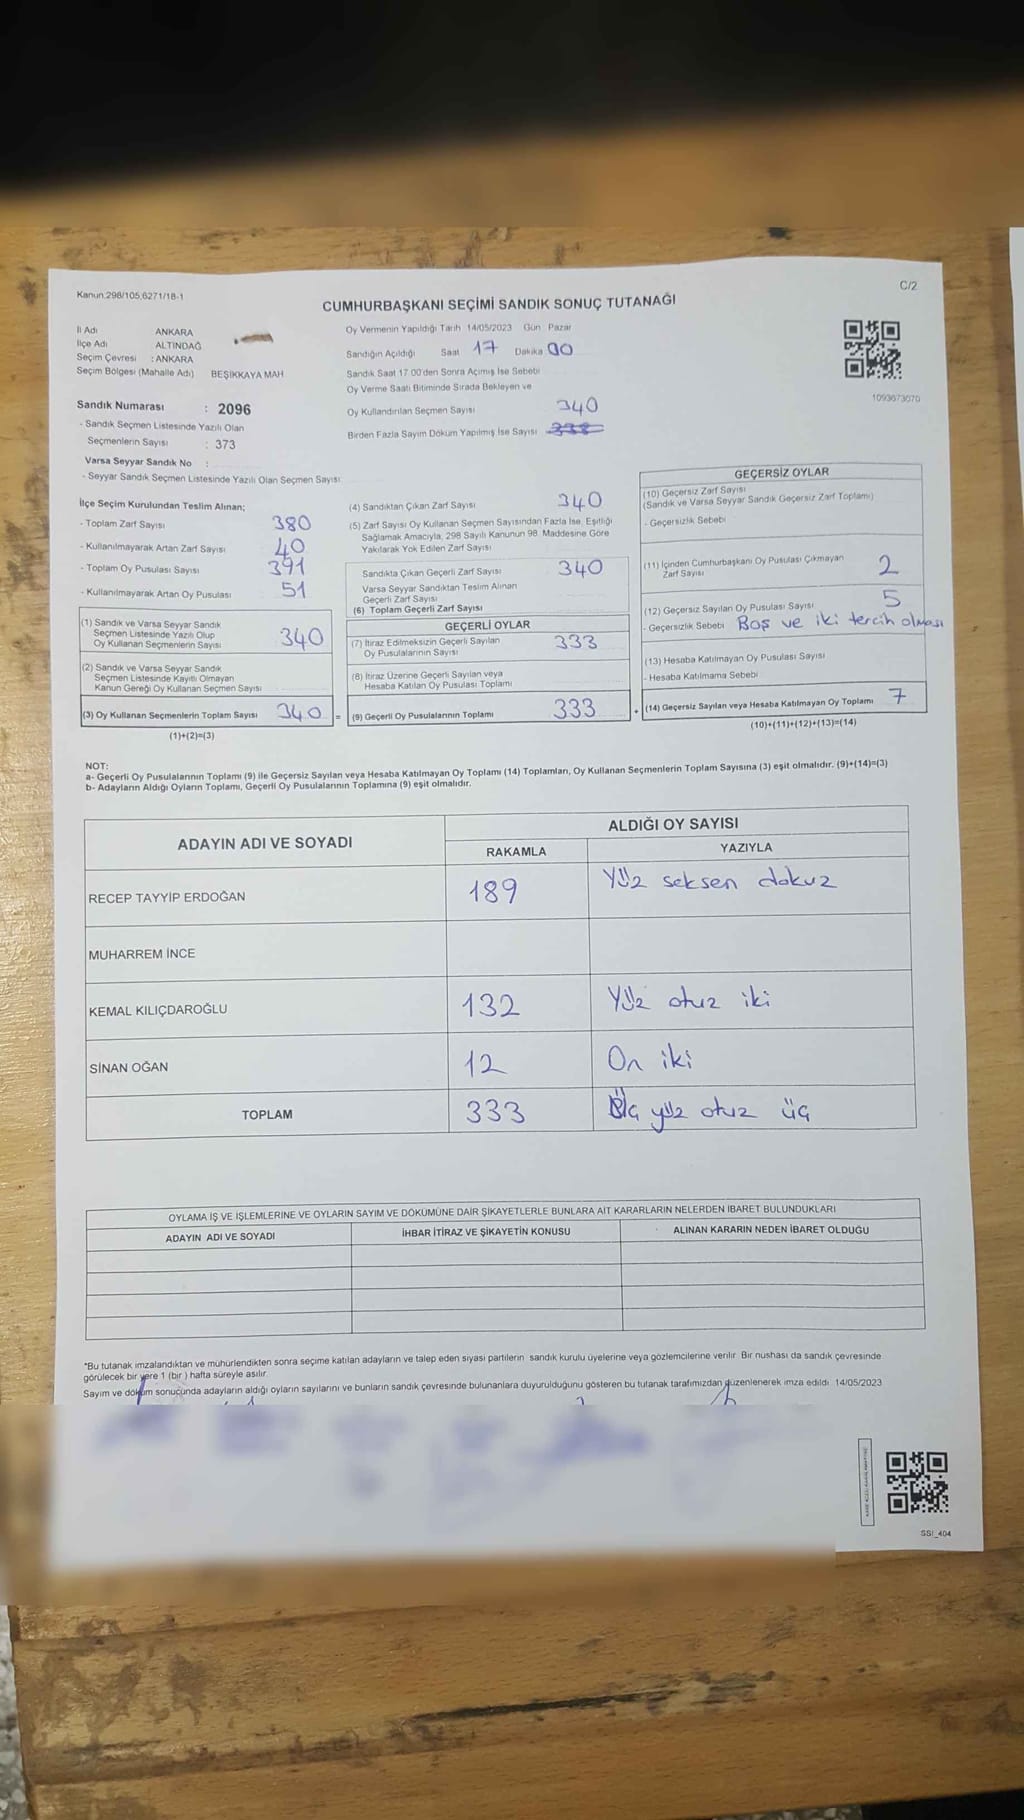 Kanun,298/105,6271/18-1
C/2
CUMHURBAŞKANI SEÇİMİ SANDIK SONUÇ TUTANAĞI
İl Adı ANKARA
İlçe Adı ALTINDAĞ
Seçim Çevresi : ANKARA
Seçim Bölgesi (Mahalle Adı) BEŞİKKAYA MAH
Sandık Numarası : 2096
- Sandık Seçmen Listesinde Yazılı Olan
Seçmenlerin Sayısı : 373
Varsa Seyyar Sandık No :
- Seyyar Sandık Seçmen Listesinde Yazılı Olan Seçmen Sayısı:
Oy Vermenin Yapıldığı Tarih 14/05/2023 Gün Pazar
Sandığın Açıldığı Saat 17 Dakika 00
Sandık Saat 17:00'den Sonra Açımış İse Sebebi
Oy Verme Saati Bitiminde Sırada Bekleyen ve
Oy Kullandırılan Seçmen Sayısı 340
Birden Fazla Sayım Döküm Yapılmış İse Sayısı 338
1093673070
İlçe Seçim Kurulundan Teslim Alınan;
- Toplam Zarf Sayısı 380
- Kullanılmayarak Artan Zarf Sayısı 40
- Toplam Oy Pusulası Sayısı 391
- Kullanılmayarak Artan Oy Pusulası 51
(1) Sandık ve Varsa Seyyar Sandık
Seçmen Listesinde Yazılı Olup
Oy Kullanan Seçmenlerin Sayısı 340
(2) Sandık ve Varsa Seyyar Sandık
Seçmen Listesinde Kayıtlı Olmayan
Kanun Gereği Oy Kullanan Seçmen Sayısı
(3) Oy Kullanan Seçmenlerin Toplam Sayısı 340 =
(1)+(2)=(3)
(4) Sandıktan Çıkan Zarf Sayısı 340
(5) Zarf Sayısı Oy Kullanan Seçmen Sayısından Fazla İse, Eşitliği
Sağlamak Amacıyla, 298 Sayılı Kanunun 98. Maddesine Göre
Yakılarak Yok Edilen Zarf Sayısı
Sandıkta Çıkan Geçerli Zarf Sayısı 340
Varsa Seyyar Sandıktan Teslim Alınan
Geçerli Zarf Sayısı
(6) Toplam Geçerli Zarf Sayısı
GEÇERLİ OYLAR
(7) İtiraz Edilmeksizin Geçerli Sayılan
Oy Pusulalarının Sayısı 333
(8) İtiraz Üzerine Geçerli Sayılan veya
Hesaba Katılan Oy Pusulası Toplamı
(9) Geçerli Oy Pusulalarının Toplamı 333 +
GEÇERSİZ OYLAR
(10) Geçersiz Zarf Sayısı
(Sandık ve Varsa Seyyar Sandık Geçersiz Zarf Toplamı)
- Geçersizlik Sebebi
(11) İçinden Cumhurbaşkanı Oy Pusulası Çıkmayan
Zarf Sayısı 2
(12) Geçersiz Sayılan Oy Pusulası Sayısı 5
- Geçersizlik Sebebi Boş ve iki tercih olması
(13) Hesaba Katılmayan Oy Pusulası Sayısı
- Hesaba Katılmama Sebebi
(14) Geçersiz Sayılan veya Hesaba Katılmayan Oy Toplamı 7
(10)+(11)+(12)+(13)=(14)
NOT:
a- Geçerli Oy Pusulalarının Toplamı (9) ile Geçersiz Sayılan veya Hesaba Katılmayan Oy Toplamı (14) Toplamları, Oy Kullanan Seçmenlerin Toplam Sayısına (3) eşit olmalıdır. (9)+(14)=(3)
b- Adayların Aldığı Oyların Toplamı, Geçerli Oy Pusulalarının Toplamına (9) eşit olmalıdır.
ADAYIN ADI VE SOYADI
ALDIĞI OY SAYISI
RAKAMLA YAZIYLA
RECEP TAYYİP ERDOĞAN 189 Yüz seksen dokuz
MUHARREM İNCE
KEMAL KILIÇDAROĞLU 132 Yüz otuz iki
SİNAN OĞAN 12 On iki
TOPLAM 333 Üç yüz otuz üç
OYLAMA İŞ VE İŞLEMLERİNE VE OYLARIN SAYIM VE DÖKÜMÜNE DAİR ŞİKAYETLERLE BUNLARA AİT KARARLARIN NELERDEN İBARET BULUNDUKLARI
ADAYIN ADI VE SOYADI İHBAR İTİRAZ VE ŞİKAYETİN KONUSU ALINAN KARARIN NEDEN İBARET OLDUĞU
*Bu tutanak imzalandıktan ve mühürlendikten sonra seçime katılan adayların ve talep eden siyasi partilerin sandık kurulu üyelerine veya gözlemcilerine verilir. Bir nüshası da sandık çevresinde
görülecek bir yere 1 (bir) hafta süreyle asılır.
Sayım ve döküm sonucunda adayların aldığı oyların sayılarını ve bunların sandık çevresinde bulunanlara duyurulduğunu gösteren bu tutanak tarafımızdan düzenlenerek imza edildi 14/05/2023
SSI_404